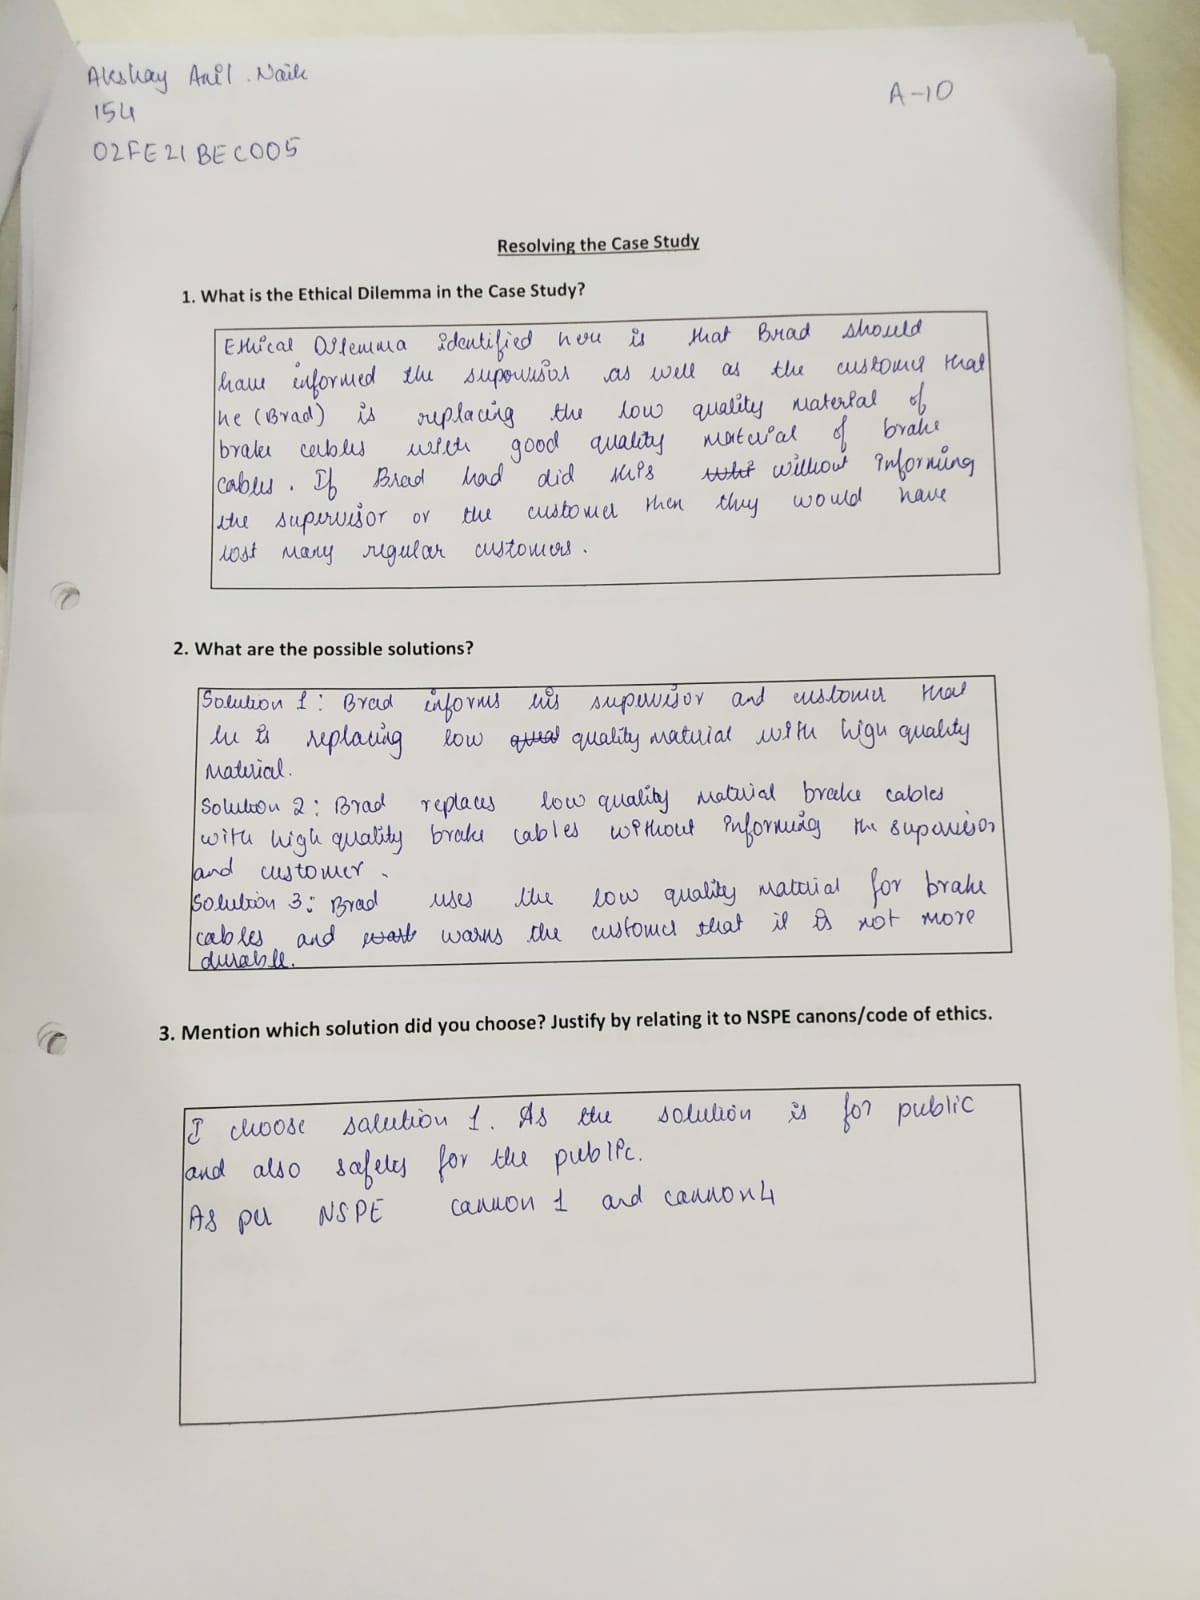 Akshay Anil . Naik
154
02FE21BEC005
A-10
Resolving the Case Study
1. What is the Ethical Dilemma in the Case Study?
Ethical Dilemma identified here is that Brad should
have informed the supervisor as well as the customer that
he (Brad) is replacing the low quality material of
brake cables with good quality material of brake
cables. If Brad had did this without informing
the supervisor or the customer then they would have
lost many regular customers.
2. What are the possible solutions?
Solution 1: Brad informs his supervisor and customer that
he is replacing low quality material with high quality
material.
Solution 2: Brad replaces low quality material brake cables
with high quality brake cables without informing the supervisor
and customer.
Solution 3: Brad uses the low quality material for brake
cables and warns the customer that it is not more
durable.
3. Mention which solution did you choose? Justify by relating it to NSPE canons/code of ethics.
I choose salution 1. As the solution is for public
and also safety for the public.
As per NSPE cannon 1 and cannon 4